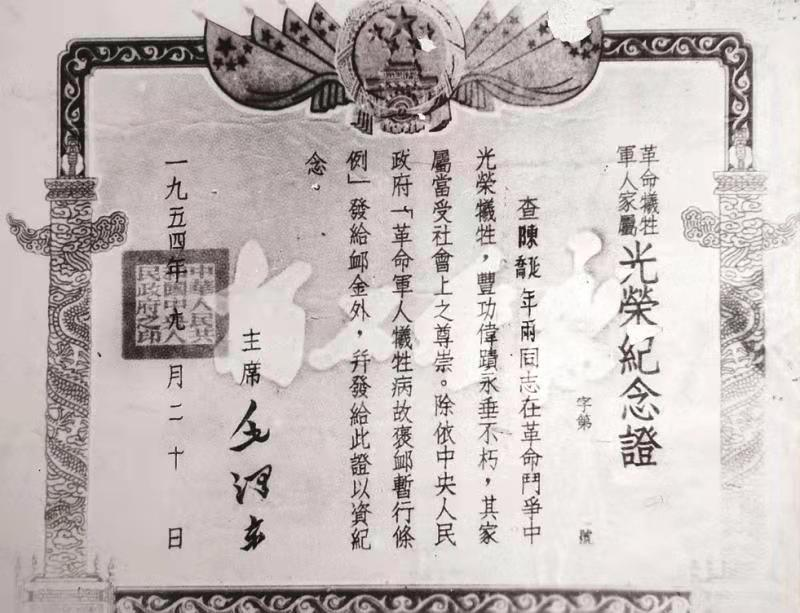 革命犧牲
軍人家屬
光榮紀念證
字第 號
查陳延喬年兩同志在革命鬥爭中
光榮犧牲，豐功偉蹟永垂不朽，其家
屬當受社會上之尊崇。除依中央人民
政府「革命軍人犧牲病故褒卹暫行條
例」發給卹金外，幷發給此證以資紀
念
主席 毛澤东
一九五四年九月二十日
中華人民共
和國中央人
民政府之印